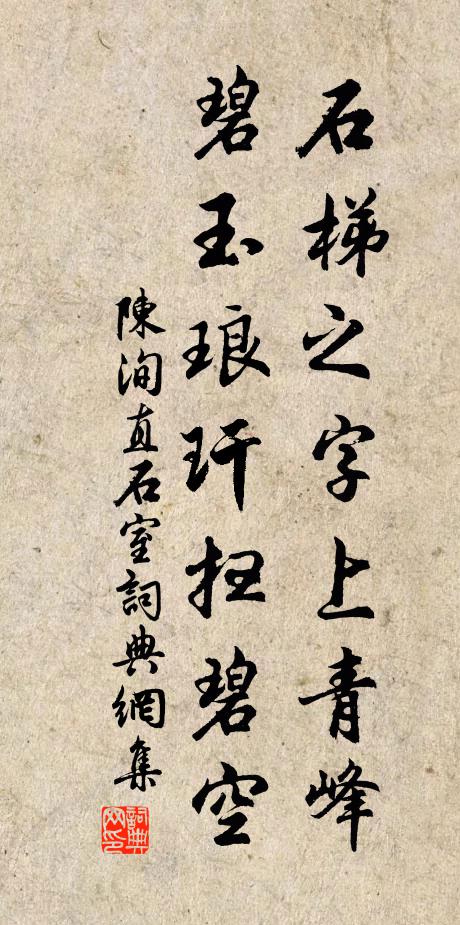 石梯之字上青峰
碧玉琅玕扫碧空
陳洵直石室詞典網集
詞典网印